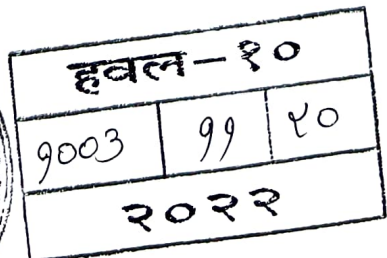 हवल-१०
१००३ ११ ४०
२०२२